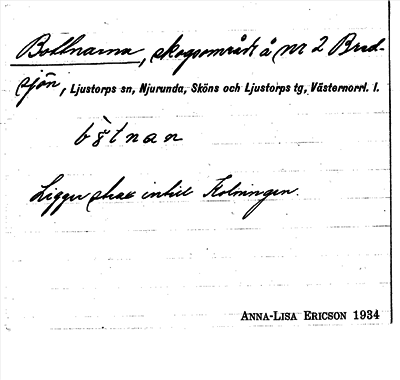 Bottnarna, skogsområde å nr 2 Bred-
sjön, Ljustorps sn, Njurunda, Sköns och Ljustorps tg, Västernorrl. l.
Ligger strax intill Kolningen.
ANNA-LISA ERICSON 1934